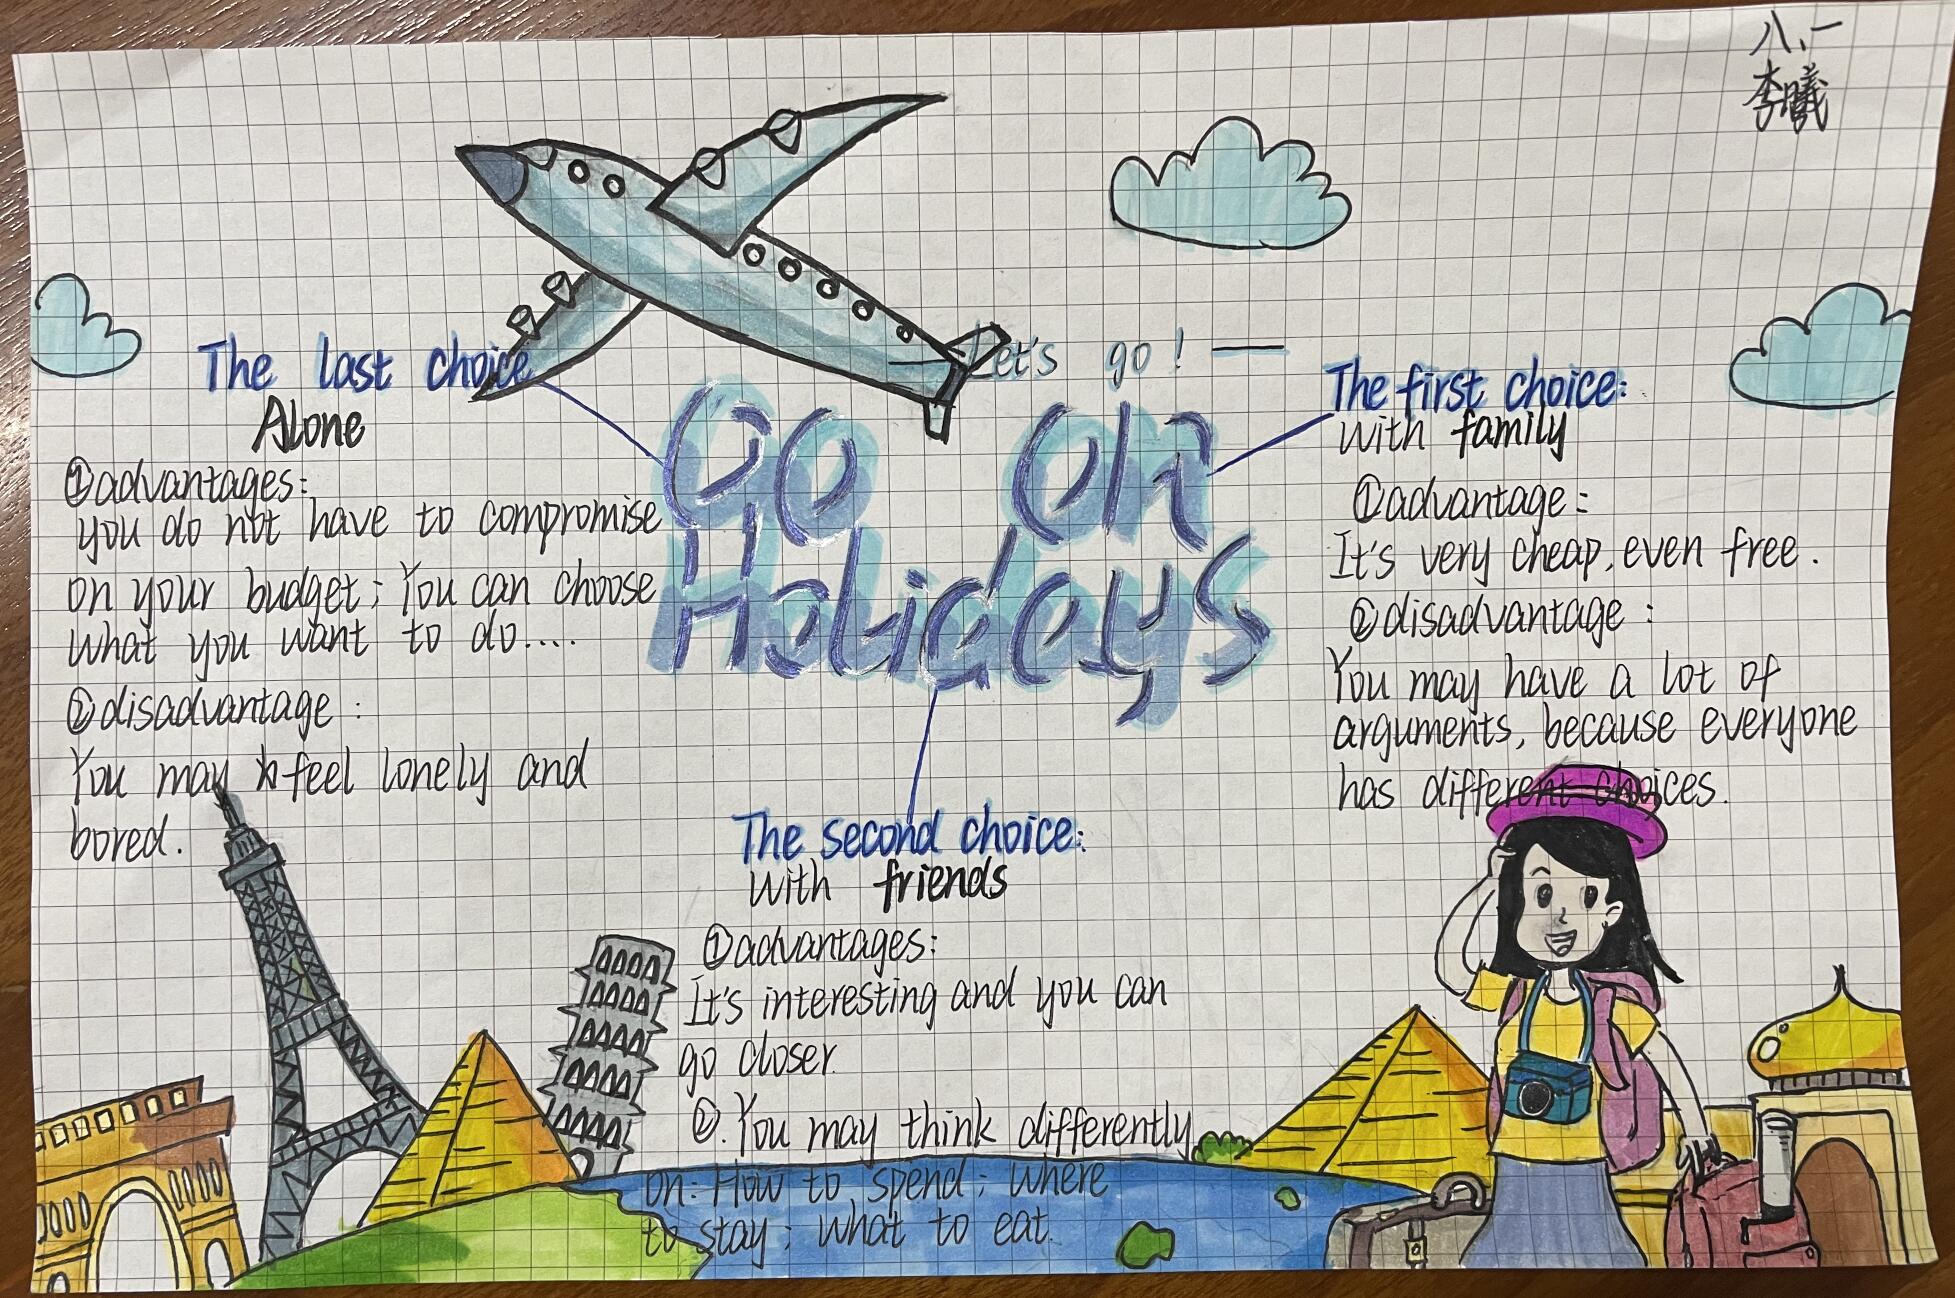 八、一
李曦
Let's go! —
Go On
Holidays
The first choice:
with family
①advantage:
It's very cheap, even free.
②disadvantage:
You may have a lot of
arguments, because everyone
has different choices.
The second choice:
with friends
①advantages:
It's interesting and you can
go closer.
②. You may think differently
on: How to spend; where
to stay; what to eat.
The last choice
Alone
①advantages:
you do not have to compromise
on your budget; You can choose
what you want to do....
②disadvantage:
You may feel lonely and
bored.